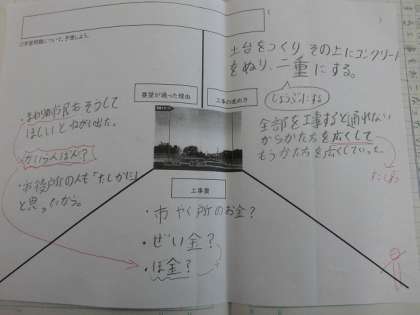 学習問題について、予想しよう。
土台をつくり その上にコンクリート
をぬり、二重にする。
じょうぶにする
要望が通った理由
工事の進め方
・まわりの市民もそうして
ほしいとねがい出た。
・市役所の人も「たしかに」
と思ったから。
全部を工事すると通れない
からかた方を広くして
もうかた方を広くしていった。
工事費
・市やく所のお金?
・ぜい金?
・ぼ金?